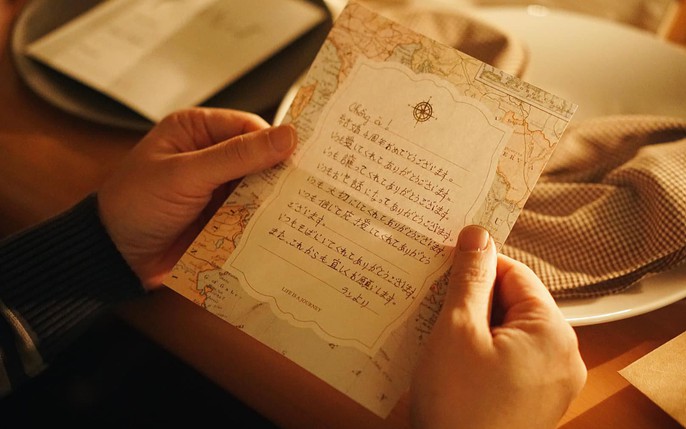 Chồng à!
結婚 周年おめでとうございます。
いつも愛してくれてありがとうございます。
いつも 守ってくれてありがとうございます。
いつも になってありがとうございます。
いつも大切にしてくれてありがとう
ございます。
いつも信じて応援してくれてありがとう
いつもそばにいてくれてありがとうございます。
また、これからも宜しくお願いします。
ランより
LIFE IS A JOURNEY